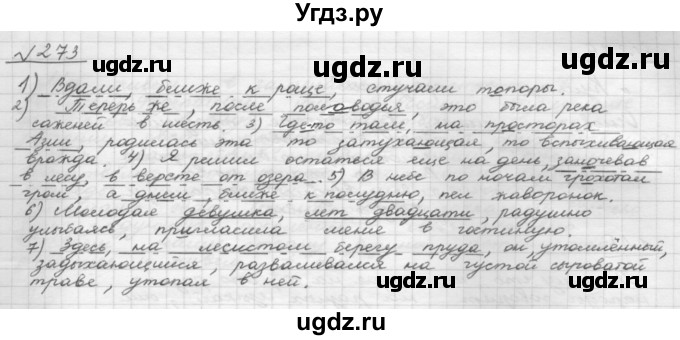 Угдз.ру
√ 273
1) Вдали, ближе к роще, стучали топоры.
2) Теперь же, после половодья, это была река
саженей в шесть. 3) Где-то там, на просторах
Азии, родилась эта то затухающая, то вспыхивающая
вражда. 4) Я решил остаться еще на день, заночевав
в лесу, в версте от озера. 5) В небе по ночам грохотал
гром, а днем, ближе к полудню, пел жаворонок.
6) Молодая девушка, лет двадцати, радушно
улыбаясь, пригласила меня в гостиную.
7) Здесь, на лесистом берегу пруда, он, утомлённый,
задыхающийся, разваливался на густой сыроватой
траве, утопал в ней.
ugdz.ru ugdz.ru ugdz.ru
ugdz.ru ugdz.ru
ugdz.ru ugdz.ru
ugdz.ru ugdz.ru
ugdz.ru